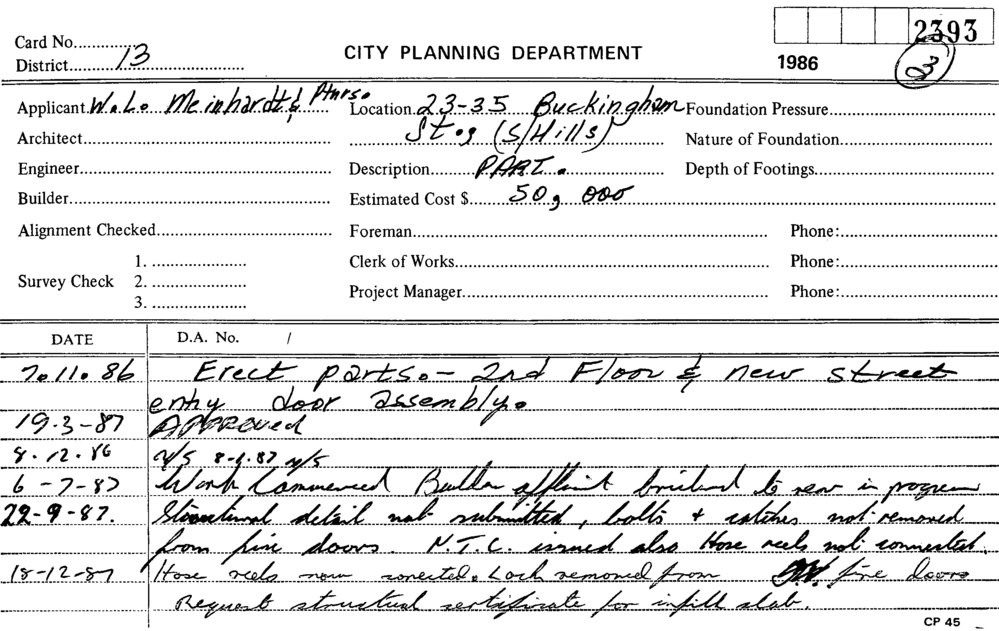 2393
Card No.
District 13
CITY PLANNING DEPARTMENT
1986
23
Applicant W.L. Meinhardt & Ptnrs. Location 23-35 Buckingham Foundation Pressure
Architect St, (S/Hills) Nature of Foundation
Engineer Description PART. Depth of Footings
Builder Estimated Cost $ 50, 000
Alignment Checked Foreman Phone:
Survey Check 1. Clerk of Works Phone:
2. Project Manager Phone:
3.
DATE D.A. No. /
7.11.86 Erect parts.- 2nd Floor & new street
entry door assembly.
19.3-87 APPROVED
8.12.86 N/S 8-1.87 N/S
6-7-87 Work Commenced Builder in progress
22-9-87. Structural detail not submitted, bolts + catches not removed
from fire doors. N.T.C. issued also Hose reels not connected.
18-12-87 Hose reels now conected. Lock removed from fire doors
Request structural certificate for infill slab.
CP 45